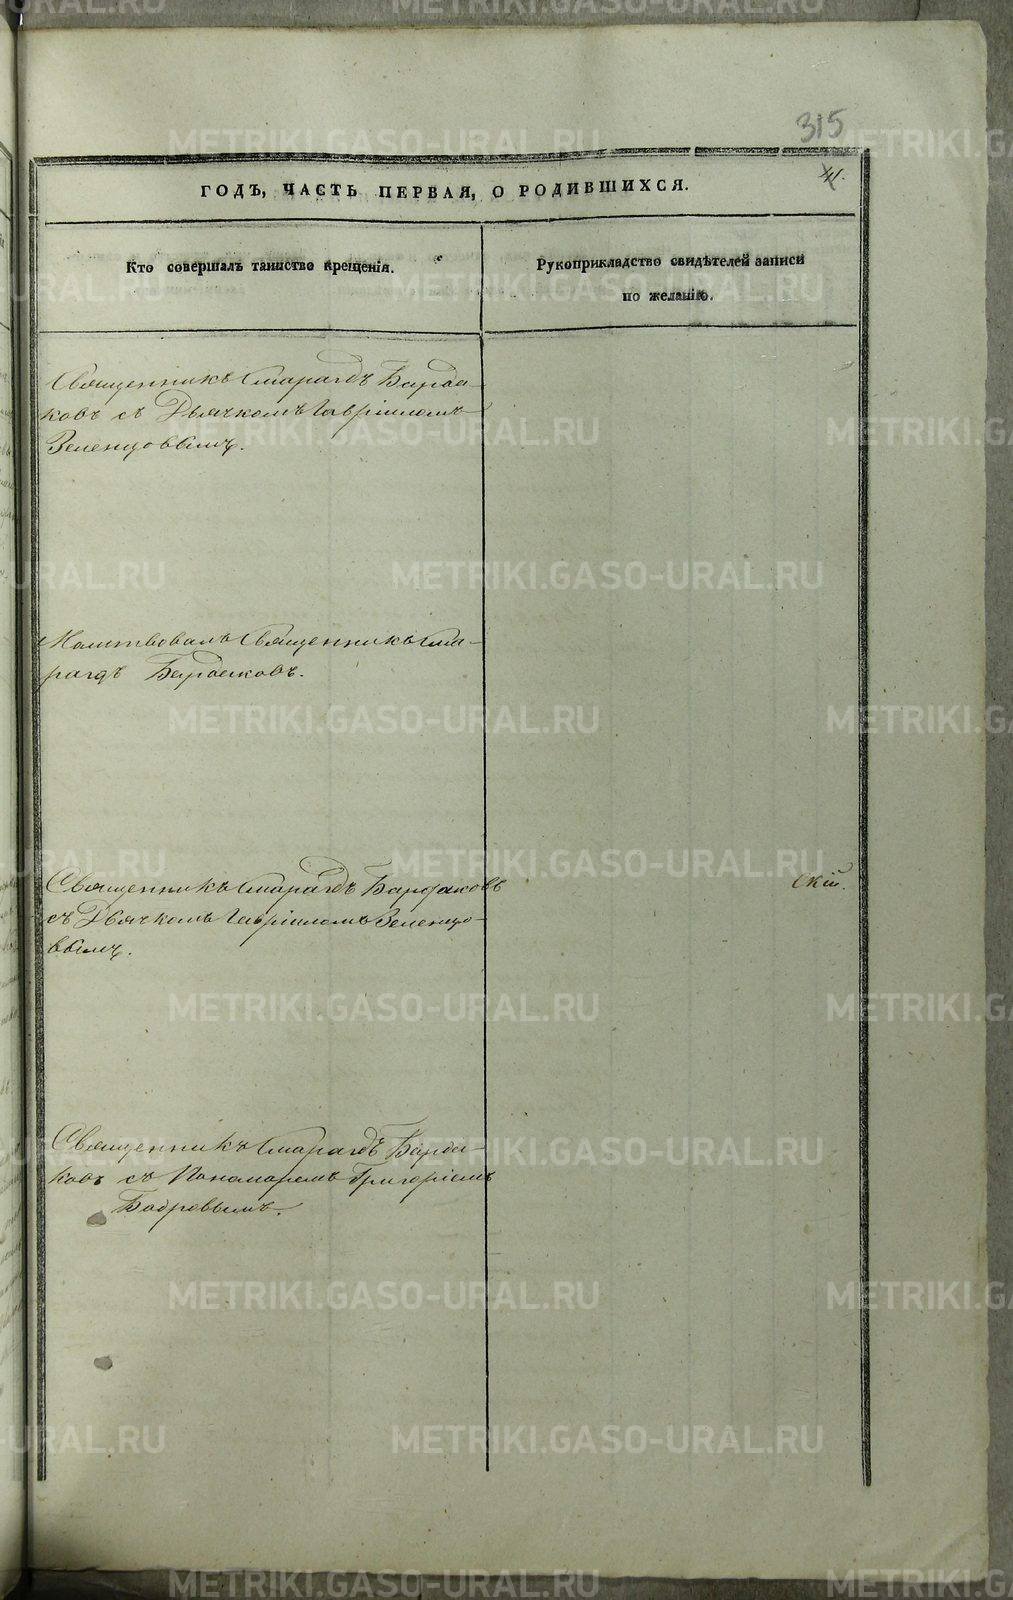 315
41.
ГОДЪ, ЧАСТЬ ПЕРВАЯ, О РОДИВШИХСЯ.
Кто совершалъ таинство крещенія.
Рукоприкладство свидѣтелей записи
по желанію.
Священникъ Смарагдъ Барда-
ковъ съ Дьячкомъ Гавріиломъ
Зеленцовымъ.
Молитвовалъ Священникъ Сма-
рагдъ Бардаковъ.
Священникъ Смарагдъ Бардаковъ
съ Дьячкомъ Гавріиломъ Зеленцо-
вымъ.
скій.
Священникъ Смарагдъ Барда-
ковъ съ Пономаремъ Григоріемъ
Бобровымъ.
METRIKI.GASO-URAL.RU